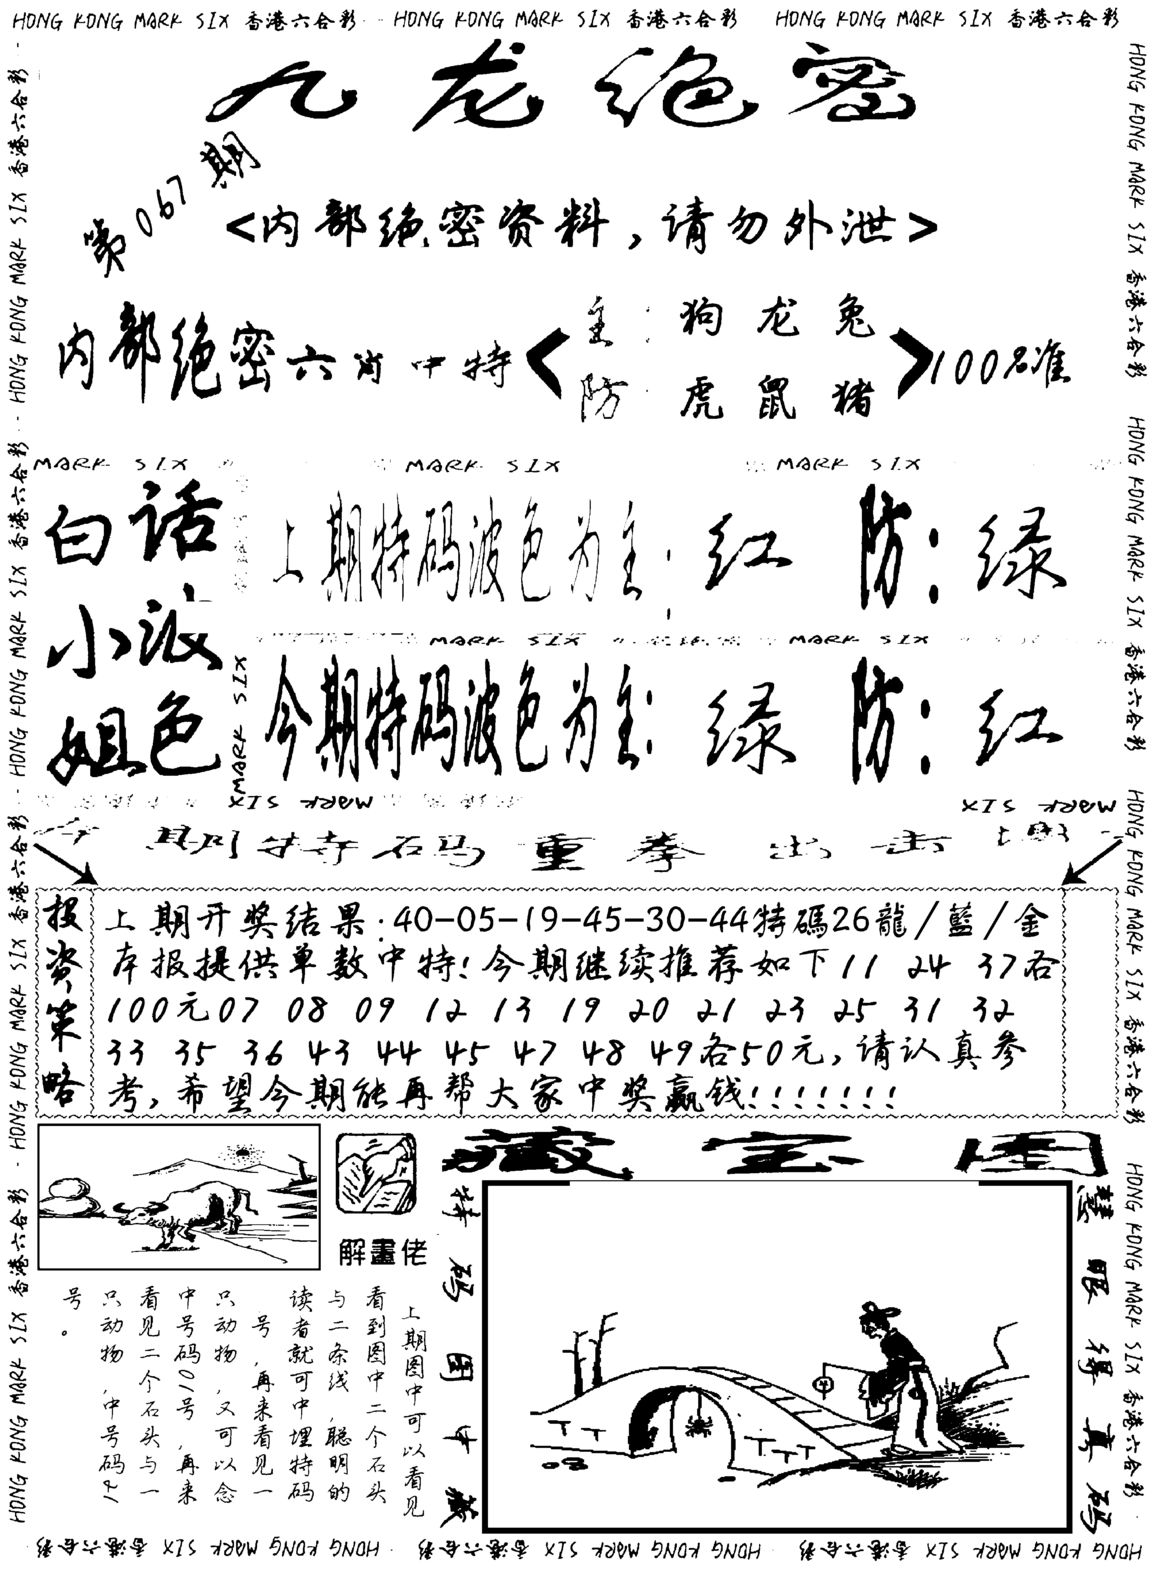 HONG KONG MARK SIX 香港六合彩 HONG KONG MARK SIX 香港六合彩 HONG KONG MARK SIX 香港六合彩
九龙绝密
第067期
<内部绝密资料,请勿外泄>
内部绝密六肖中特
主:狗龙兔
防:虎鼠猪
100%准
MARK SIX MARK SIX MARK SIX
白话
小波
姐色
上期特码波色为主:红 防:绿
MARK SIX MARK SIX
MARK SIX
今期特码波色为主:绿 防:红
MARK SIX MARK SIX
今期特码重拳出击
投资策略
上期开奖结果:40-05-19-45-30-44特碼26龍/藍/金
本报提供单数中特!今期继续推荐如下11 24 37各
100元07 08 09 12 13 19 20 21 23 25 31 32
33 35 36 43 44 45 47 48 49各50元,请认真参
考,希望今期能再帮大家中奖赢钱!!!!!!!
解畫佬
上期图中可以看见
看到图中二个石头
与二条线,聪明的
读者就可中埋特码
号,再来看见一
只动物,又可以念
中号码10号,再来
看见二个石头与一
只动物,中号码41
号。
藏宝图
特码图中藏
慧眼得真码
HONG KONG MARK SIX 香港六合彩 HONG KONG MARK SIX 香港六合彩 HONG KONG MARK SIX 香港六合彩 HONG KONG MARK SIX 香港六合彩
HONG KONG MARK SIX 香港六合彩 HONG KONG MARK SIX 香港六合彩 HONG KONG MARK SIX 香港六合彩 HONG KONG MARK SIX 香港六合彩
HONG KONG MARK SIX 香港六合彩 HONG KONG MARK SIX 香港六合彩 HONG KONG MARK SIX 香港六合彩